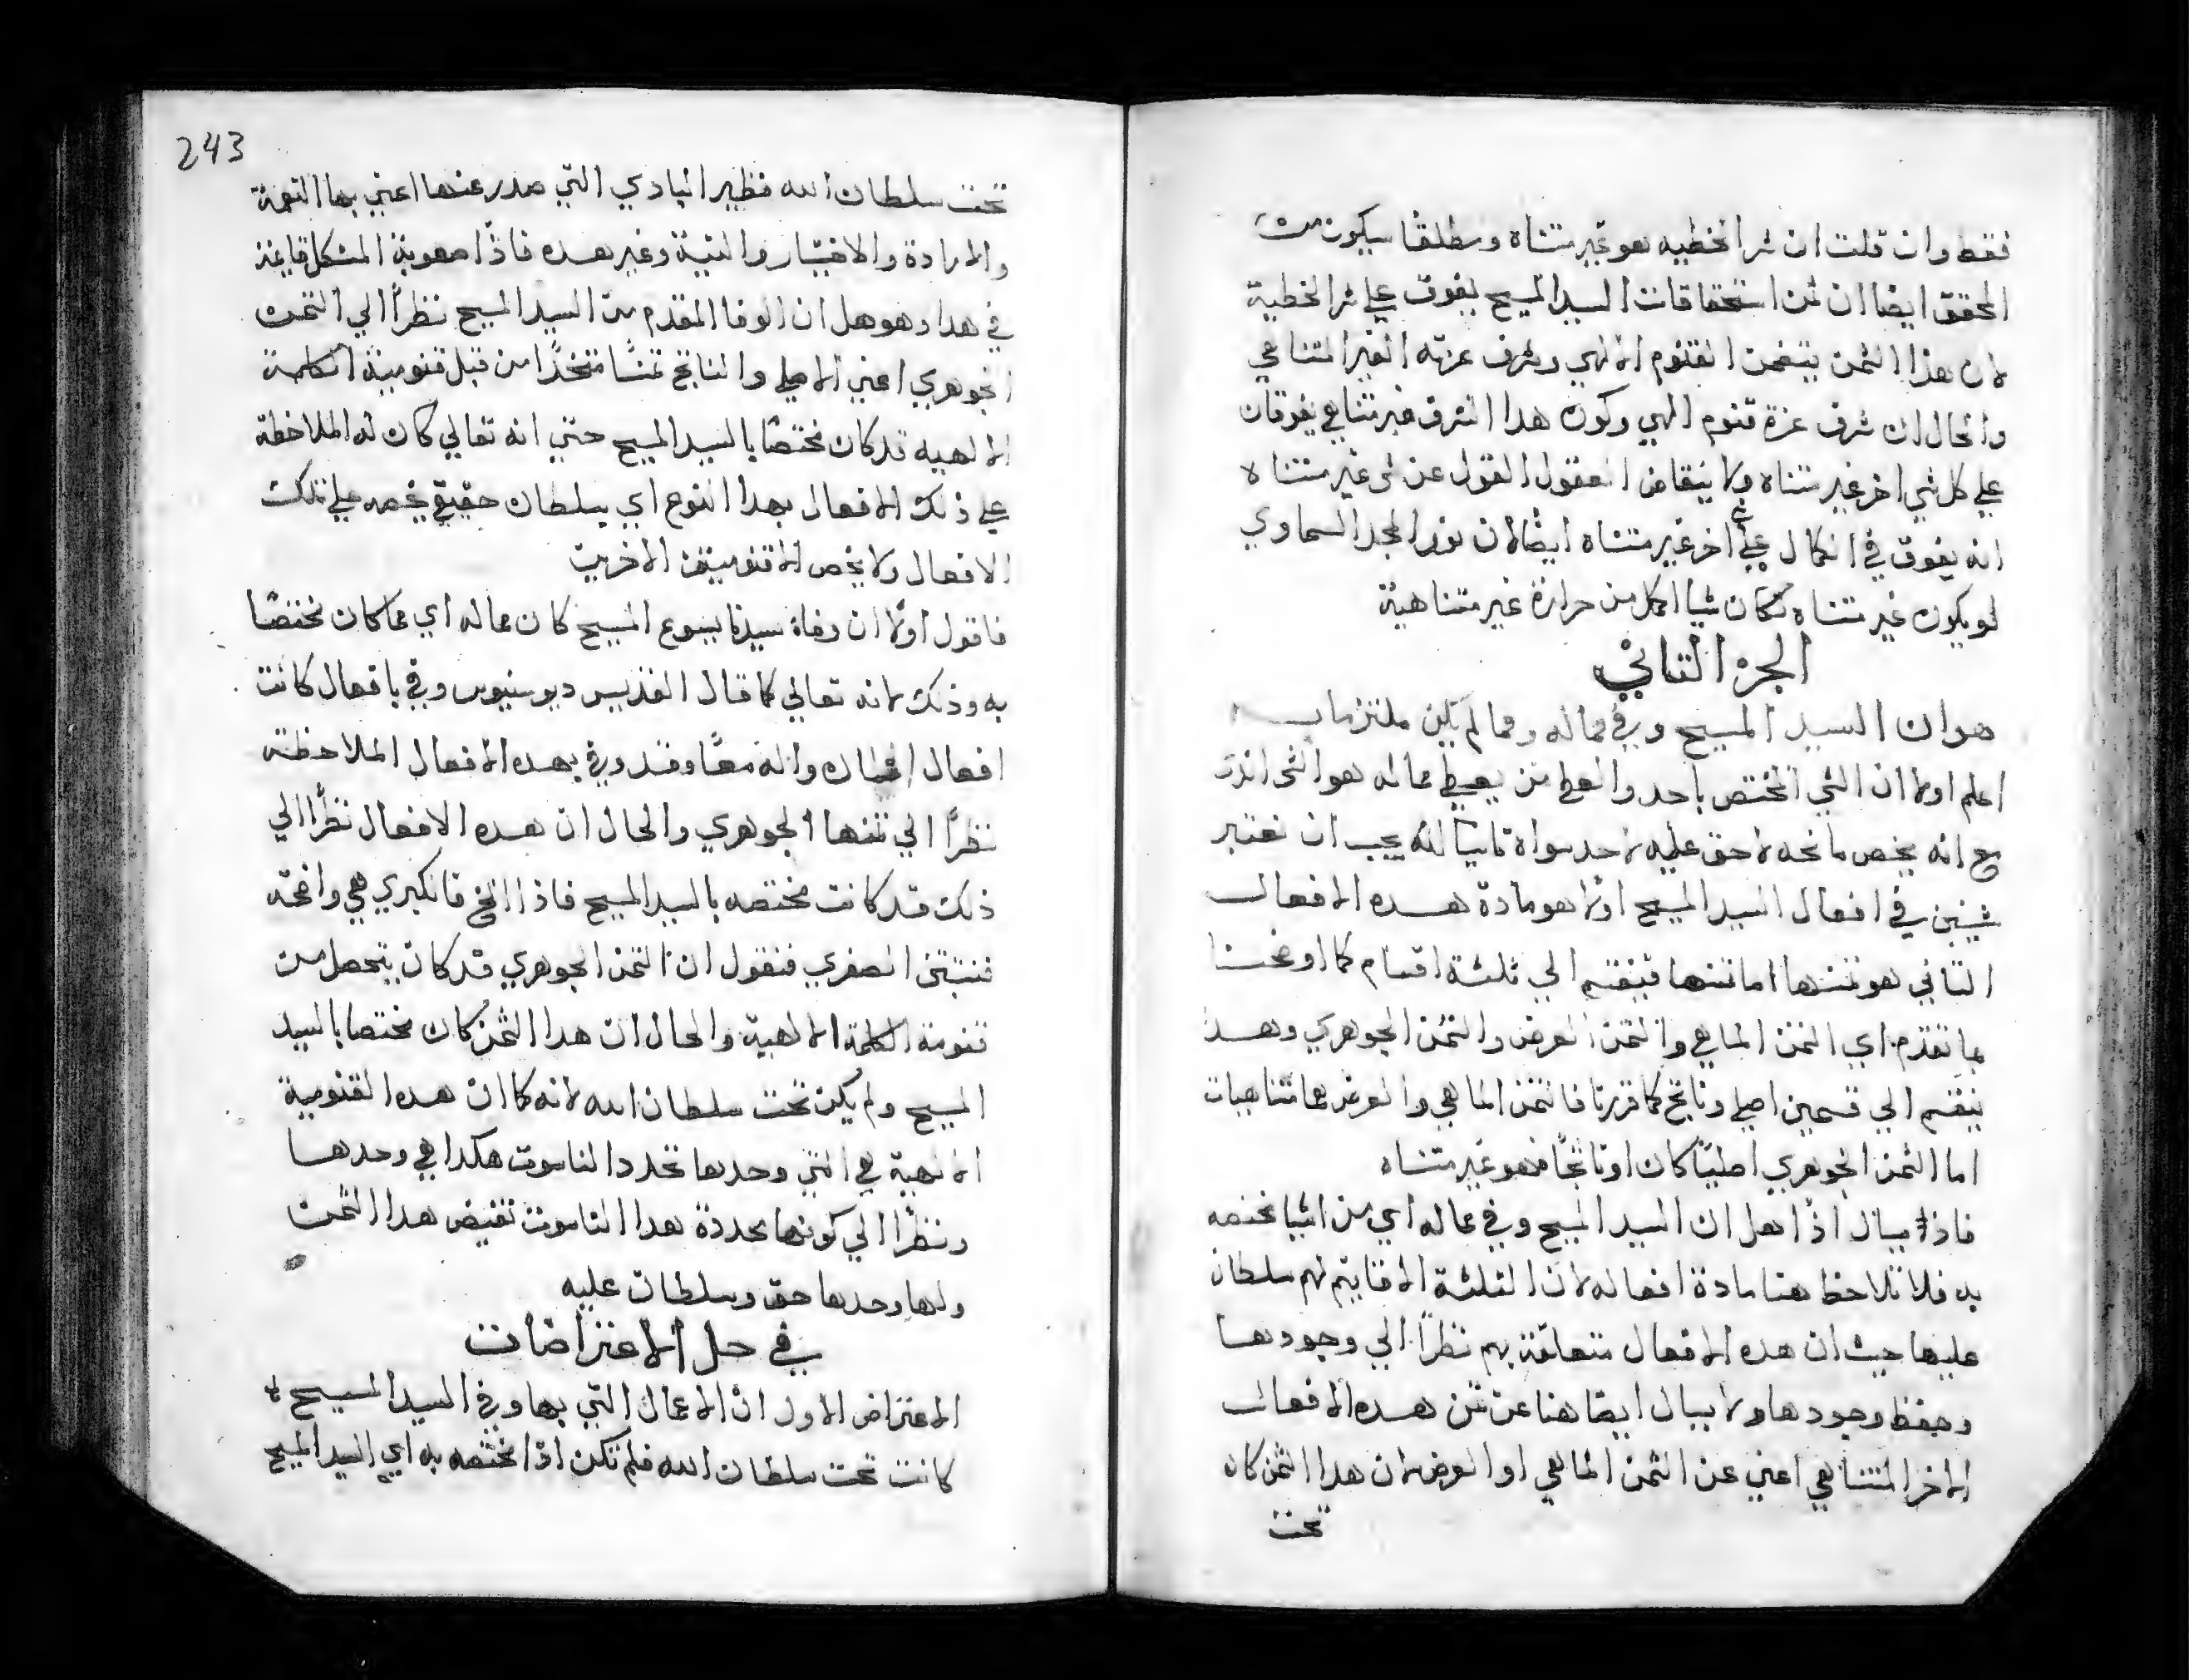 فقط وان قلت ان شر الخطيه هو غير متناه ومطلقا سيكون من
المحقق ايضا ان ثمن استحقاقات السيد المسيح يفوق علي شر الخطية
لان هذا الثمن يتضمن القنوم الالهي وشرف عزته الغير المتناهي
والحال ان شرف عزة قنوم الهي وكون هدا الشرف غير متناهي يفوقان
علي كل شي اخر غير متناه ولا يتقاض العقول القول عن شي غير متناه
انه يفوق في الكمال علي اخر غير متناه ايضا لان نور المجد السماوي
لو يكون غير متناه لكان شيا اكمل من حرارة غير متناهية
الجزء التاني
هو ان السيد المسيح وفي مما له ومما لم يكن ملتزما به
اعلم اولا ان الشي المختص باحد والمعطي من يعطي مما له هو الشي الذي
مع انه يخص مانحه لا حق عليه لاحد سواه تانيا انه يجب ان نعتبر
شيين في افعال السيد المسيح اولا هو مادة هده الافعال
التاني هو ثمنها اما ثمنها فينقسم الي ثلثة اقسام كما اوضحنا
بما تقدم اي الثمن الماهي والثمن العرضي والثمن الجوهري وهدا
ينقسم الي قسمين اصلي وناتج كما قررنا فالثمن الماهي والعرضي هما متناهيان
اما الثمن الجوهري اصليا كان او ناتجا فهو غير متناه
فاذا يسال اذا هل ان السيد المسيح وفي مما له اي من اشيا مختصه
به فلا تلاحظ هنا مادة افعاله لان الثلثة الاقانيم لهم سلطان
عليها حيث ان هده الافعال متعلقة بهم نظرا الي وجودها
وحفظ وجودها ولا يسال ايضا هنا عن ثمن هده الافعال
الاخر المتناهي اعني عن الثمن الماهي او العرضي لان هدا الثمن كان
تحت
243
تحت سلطان الله نظير المبادي التي صدر عنها اعني بها النعمة
والارادة والاختيار والنية وغير هده فاذا صعوبة المشكل قايمة
في هدا وهو هل ان الوفا المقدم من السيد المسيح نظرا الي الثمن
الجوهري اعني الاصلي والناتج ثمنا متخذا من قبل قنومية الكلمة
الالهيه قد كان مختصا بالسيد المسيح حتي انه تعالي كان له الملاحظة
علي ذلك الافعال بهدا النوع اي بسلطان حقيقي يخصه علي تلك
الافعال ولا يخص الاقنومين الاخرين
فاقول اولا ان وفاء سيدنا يسوع المسيح كان مما له اي مما كان مختصا
به وذلك لانه تعالي كما قال القديس ديونسيوس وفي بافعال كانت
افعال انسان واله معا وقد وفي بهده الافعال الملاحظة
نظرا الي ثمنها الجوهري والحال ان هده الافعال نظرا الي
ذلك قد كانت مختصه بالسيد المسيح فاذا الخ فالكبري هي واضحة
فنتبتن الصغري فنقول ان الثمن الجوهري قد كان يتحصل من
قنومة الكلمة الالهية والحال ان هدا الثمن كان مختصا بالسيد
المسيح ولم يكن تحت سلطان الله لانه كما ان هده القنومية
الالهية هي التي وحدها تحدد الناسوت هكدا هي وحدها
ونظرا الي كونها محددة هدا الناسوت تفيض هدا الثمن
ولها وحدها حق وسلطان عليه
في حل الاعتراضات
الاعتراض الاول ان الاعمال التي بها وفي السيد المسيح
كانت تحت سلطان الله فلم تكن اذا مختصه به اي السيد المسيح